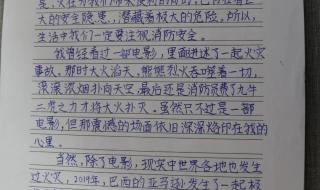 大的安全隐患，潜藏着极大的危险。所以，
生活中我们一定要注视消防安全。
我曾经看过一部电影，里面讲述了一起火灾
事故，那时大火滔天，熊熊烈火吞噬着一切，
滚滚浓烟扑向天空，最后还是消防员费了九牛
二虎之力才将大火扑灭。虽然只不过是一部
电影，但那震撼的场面依旧深深烙印在我的
心里。
当然，除了电影，现实中世界各地也发生
过火灾，2019年，巴西的亚马逊发生了一起